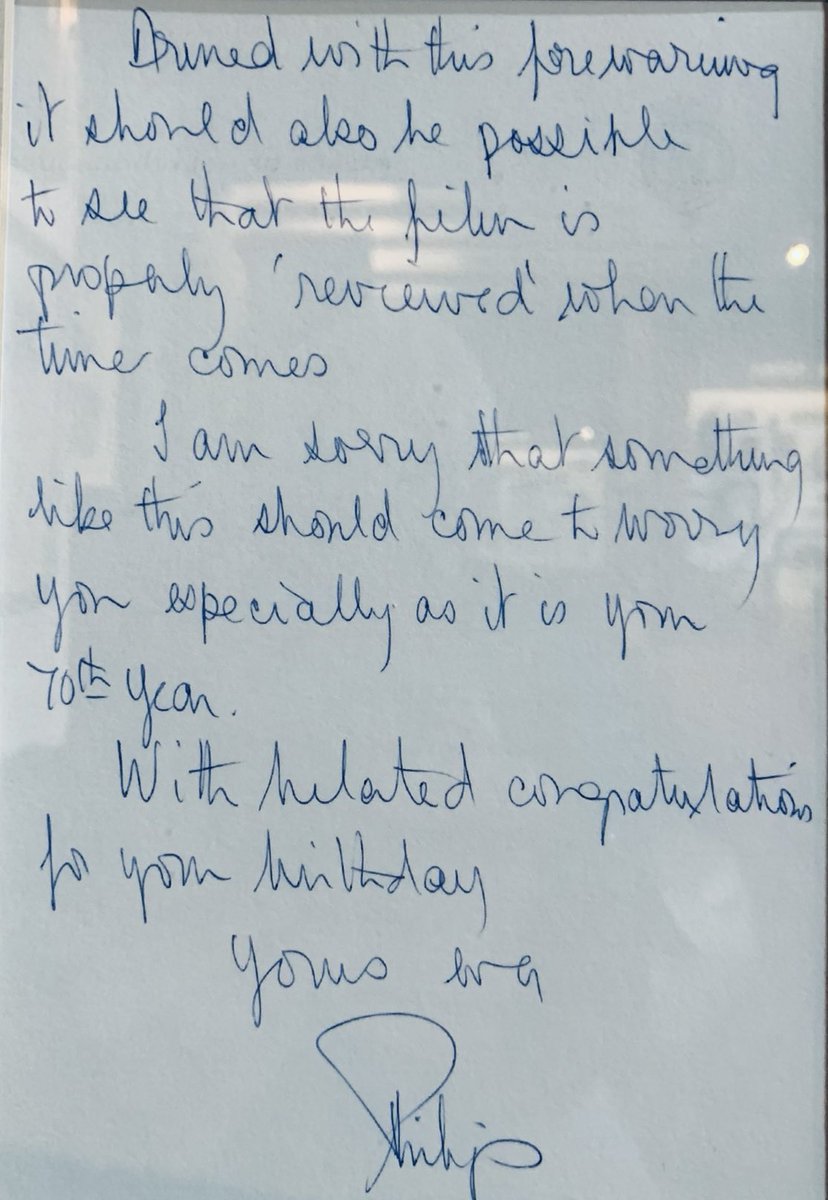 Armed with this forewarning
it should also be possible
to see that the film is
properly 'reviewed' when the
time comes
I am sorry that something
like this should come to worry
you especially as it is your
70th year.
With belated congratulations
for your birthday
Yours ever
Philip